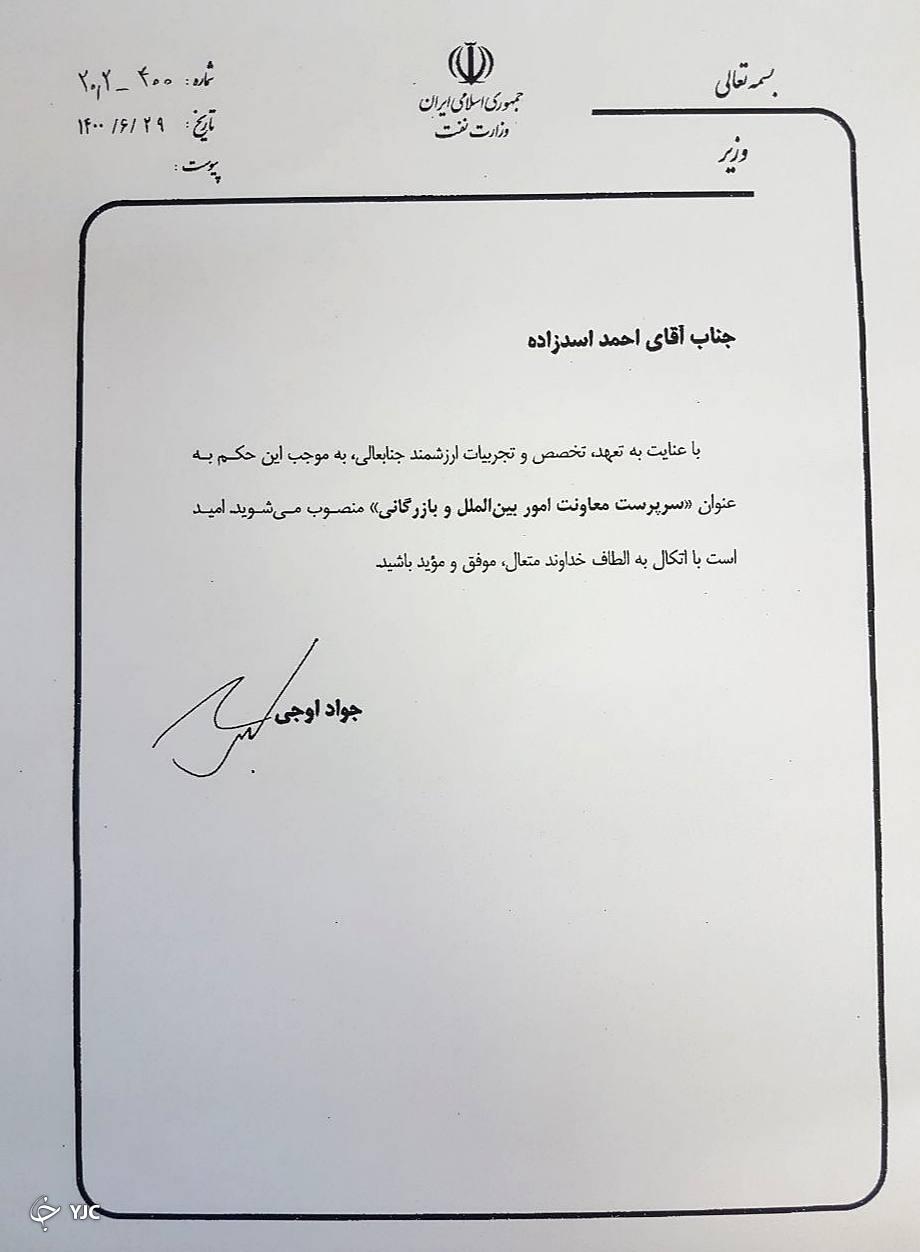 بسمه تعالی
جمهوری اسلامی ایران
وزارت نفت
وزیر
شماره: ۴۰۰ - ۲۰٫۲
تاریخ: ۱۴۰۰/۶/۲۹
پیوست:
جناب آقای احمد اسدزاده
با عنایت به تعهد، تخصص و تجربیات ارزشمند جنابعالی، به موجب این حکم به
عنوان «سرپرست معاونت امور بین‌الملل و بازرگانی» منصوب می‌شوید. امید
است با اتکال به الطاف خداوند متعال، موفق و مؤید باشید.
جواد اوجی
YJC